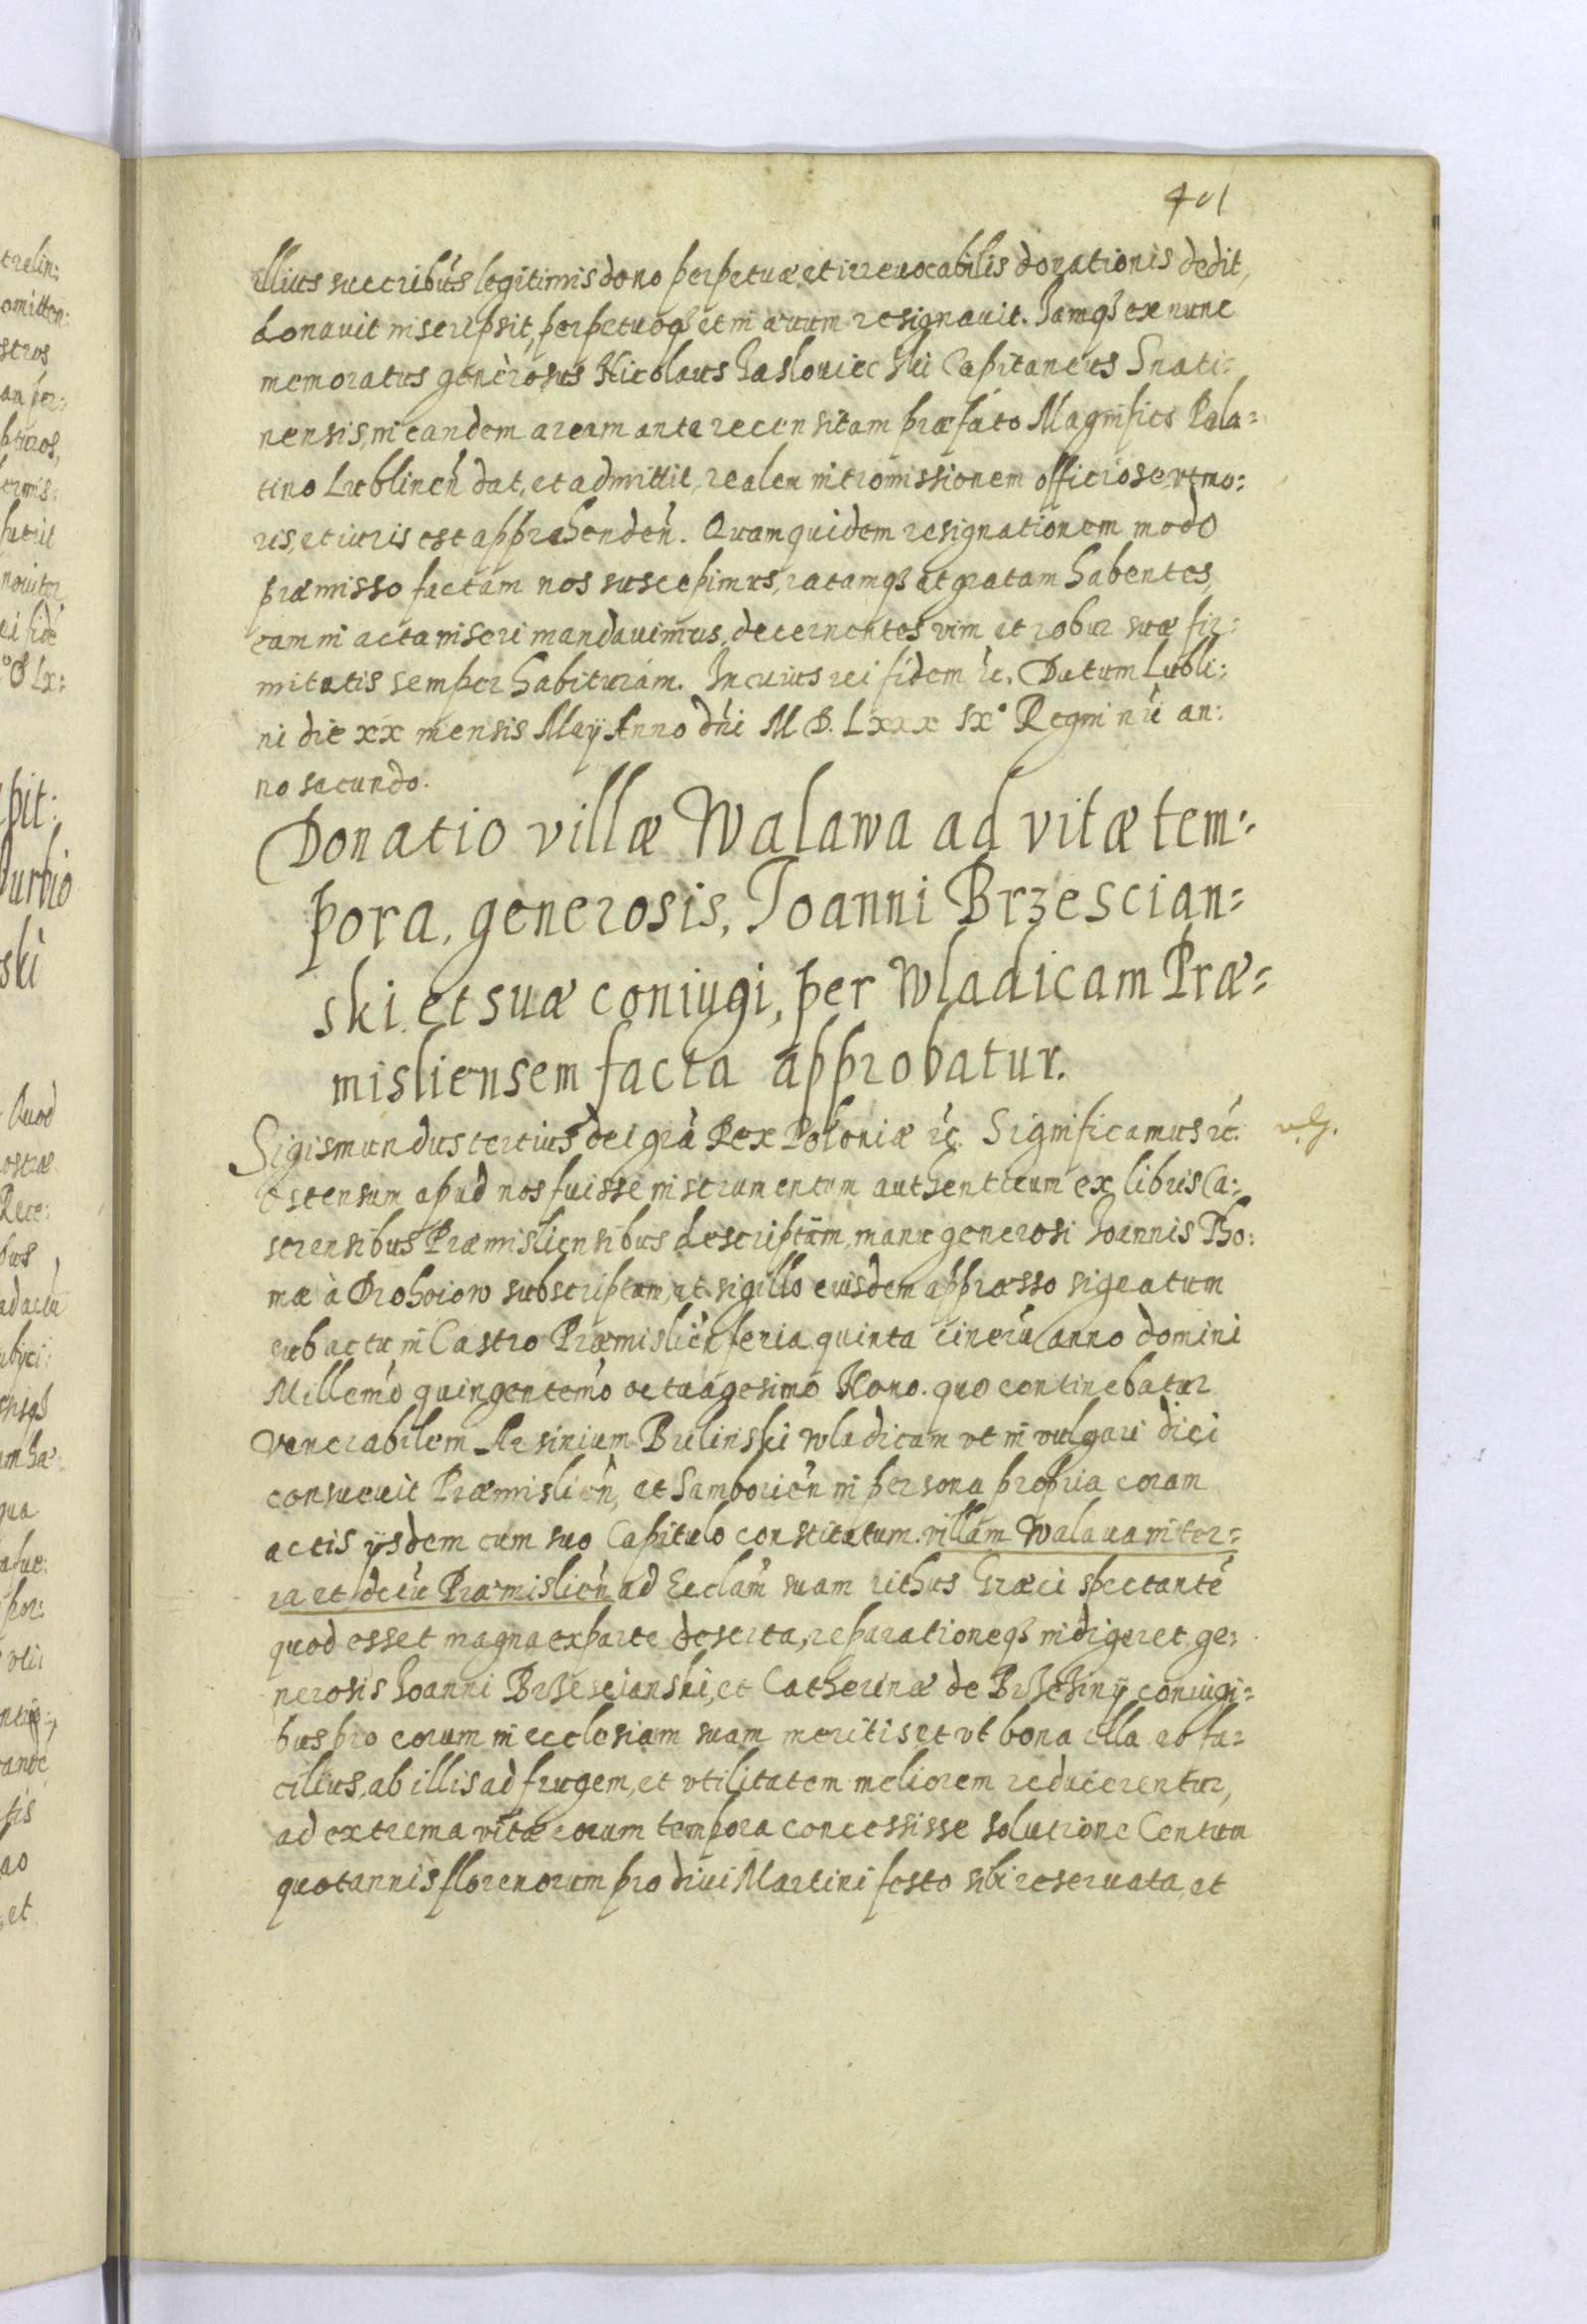 401
illius succribus legitimis dono perpetuæ et irreuocabilis donationis dedit,
donauit inscripsit, perpetuoq3 et in æuum resignauit. Iamq3 ex nunc
memoratus generosus Nicolaus Iasloviecski Capitaneus Snati:
nensis, in eandem aream ante recensitam præfato Magnifico Pala:
tino Lublineñ dat, et admittit, realem intromissionem officiose, vt mo:
ris, et iuris est apprehendeñ. Quam quidem resignationem modo
præmisso factam nos suscepimus, ratamq3 et gratam habentes,
eam in acta inseri mandauimus, decernentes vim et robur suæ fir:
mitatis semper habituram. In cuius rei fidem etc. Datum Lubli:
ni die xx mensis Maÿ Anno dñi M D. Lxxx ix° Regni nři an:
no secundo.
Donatio villæ Walawa ad vitæ tem:
pora, generosis, Ioanni Brzescian:
ski et suæ coniugi, per Wladicam Præ:
misliensem facta approbatur.
Sigismundus tertius dei grã Rex Poloniæ etc. Significamus etc.
ostensum apud nos fuisse instrumentum authenticum ex libris Ca:
strensibus Præmisliensibus descriptũm, manu generosi Ioannis Tho:
mæ à Drohoiow subscriptum, et sigillo eiusdem appresso signatum
sub actu in Castro Præmislieñ feria quinta cinerũ anno domini
Millemo quingentemo octuagesimo Nono. quo continebatur
Venerabilem Arsinium Brilinski wladicam vt in vulgari dici
consueuit Præmislieñ, et Samborieñ in persona propria coram
actis ijsdem cum suo Capitulo constitutum. villam Walaua in ter:
ra et dcčũ Præmislieñ ad Ecclam suam rithus Græci spectantẽ
quod esset magna ex parte deserta, reparationeq3 indigeret, ge:
nerosis Ioanni Brzescianski, et Catherinæ de Brzezinÿ coniugi:
bus pro eorum in ecclesiam suam meritis et vt bona illa eo fa:
cilius, ab illis ad frugem, et vtilitatem meliorem reducerentur,
ad extrema vitæ eorum tempora concessisse solutione Centum
quotannis florenorum pro diui Martini festo sibi reseruata, et